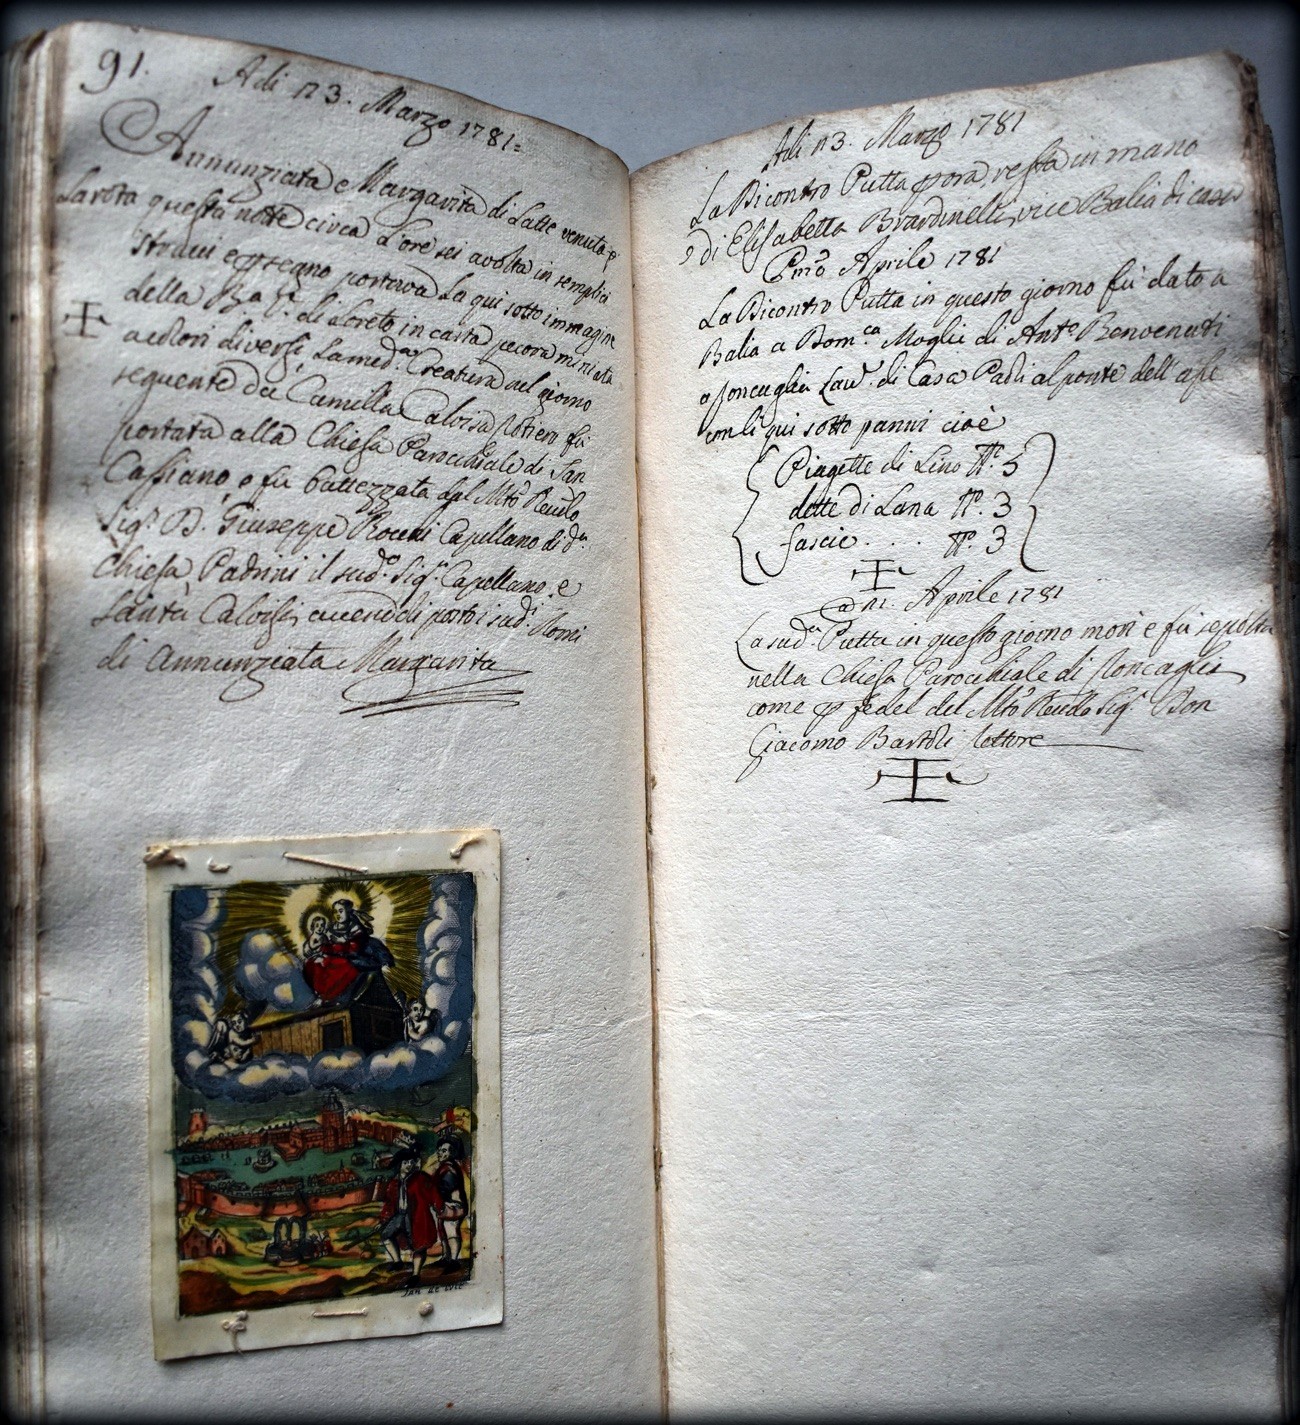 91.
Adi 23. Marzo 1781=
Annunziata e Margarita di Latte venuta p
La rota questa notte circa L'ore sei avolta in semplici
Strazzi e p segno portava La qui sotto immagine
della Ba Vᵉ. di Loreto in carta pecora miniata
a colori diversi, La medᵐᵃ. Creatura nel giorno
seguente da Camilla Caloisa fù
portata alla Chiesa Parochiale di San
Cassiano, e fù battezzata dal Mtº Revdo
Sigʳ. D. Giuseppe Capellano di dᵃ.
Chiesa Padrini il sudº. Sigʳ. Capellano. e
Santa Caloisi, avendoli posto i sudⁱ. Nomi
di Annunziata Margarita
Adi 23. Marzo 1781
La Dicontro Putta p ora, resta in mano
di Elisabetta Brardinelli, vice Balia di casa
Pmº Aprile 1781
La Dicontro Putta in questo giorno fù dato a
Balia a Domᶜᵃ Moglie di Antº. Benvenuti
a Roncaglia Lauʳ. di Casa Padri al ponte dell'
con li qui sotto panni cioè
Piagette di Lino Nº. 5
dette di Lana Nº. 3
fascie . . . Nº. 3
Aprile 1781
La sudᵃ. Putta in questo giorno morì e fù sepolta
nella Chiesa Parochiale di Roncaglia
come p fedel del Mtº Revdo Sigʳ. Don
Giacomo Bartoli lettore